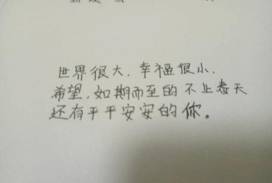 世界很大，幸福很小，
希望，如期而至的不止春天
还有平平安安的你。